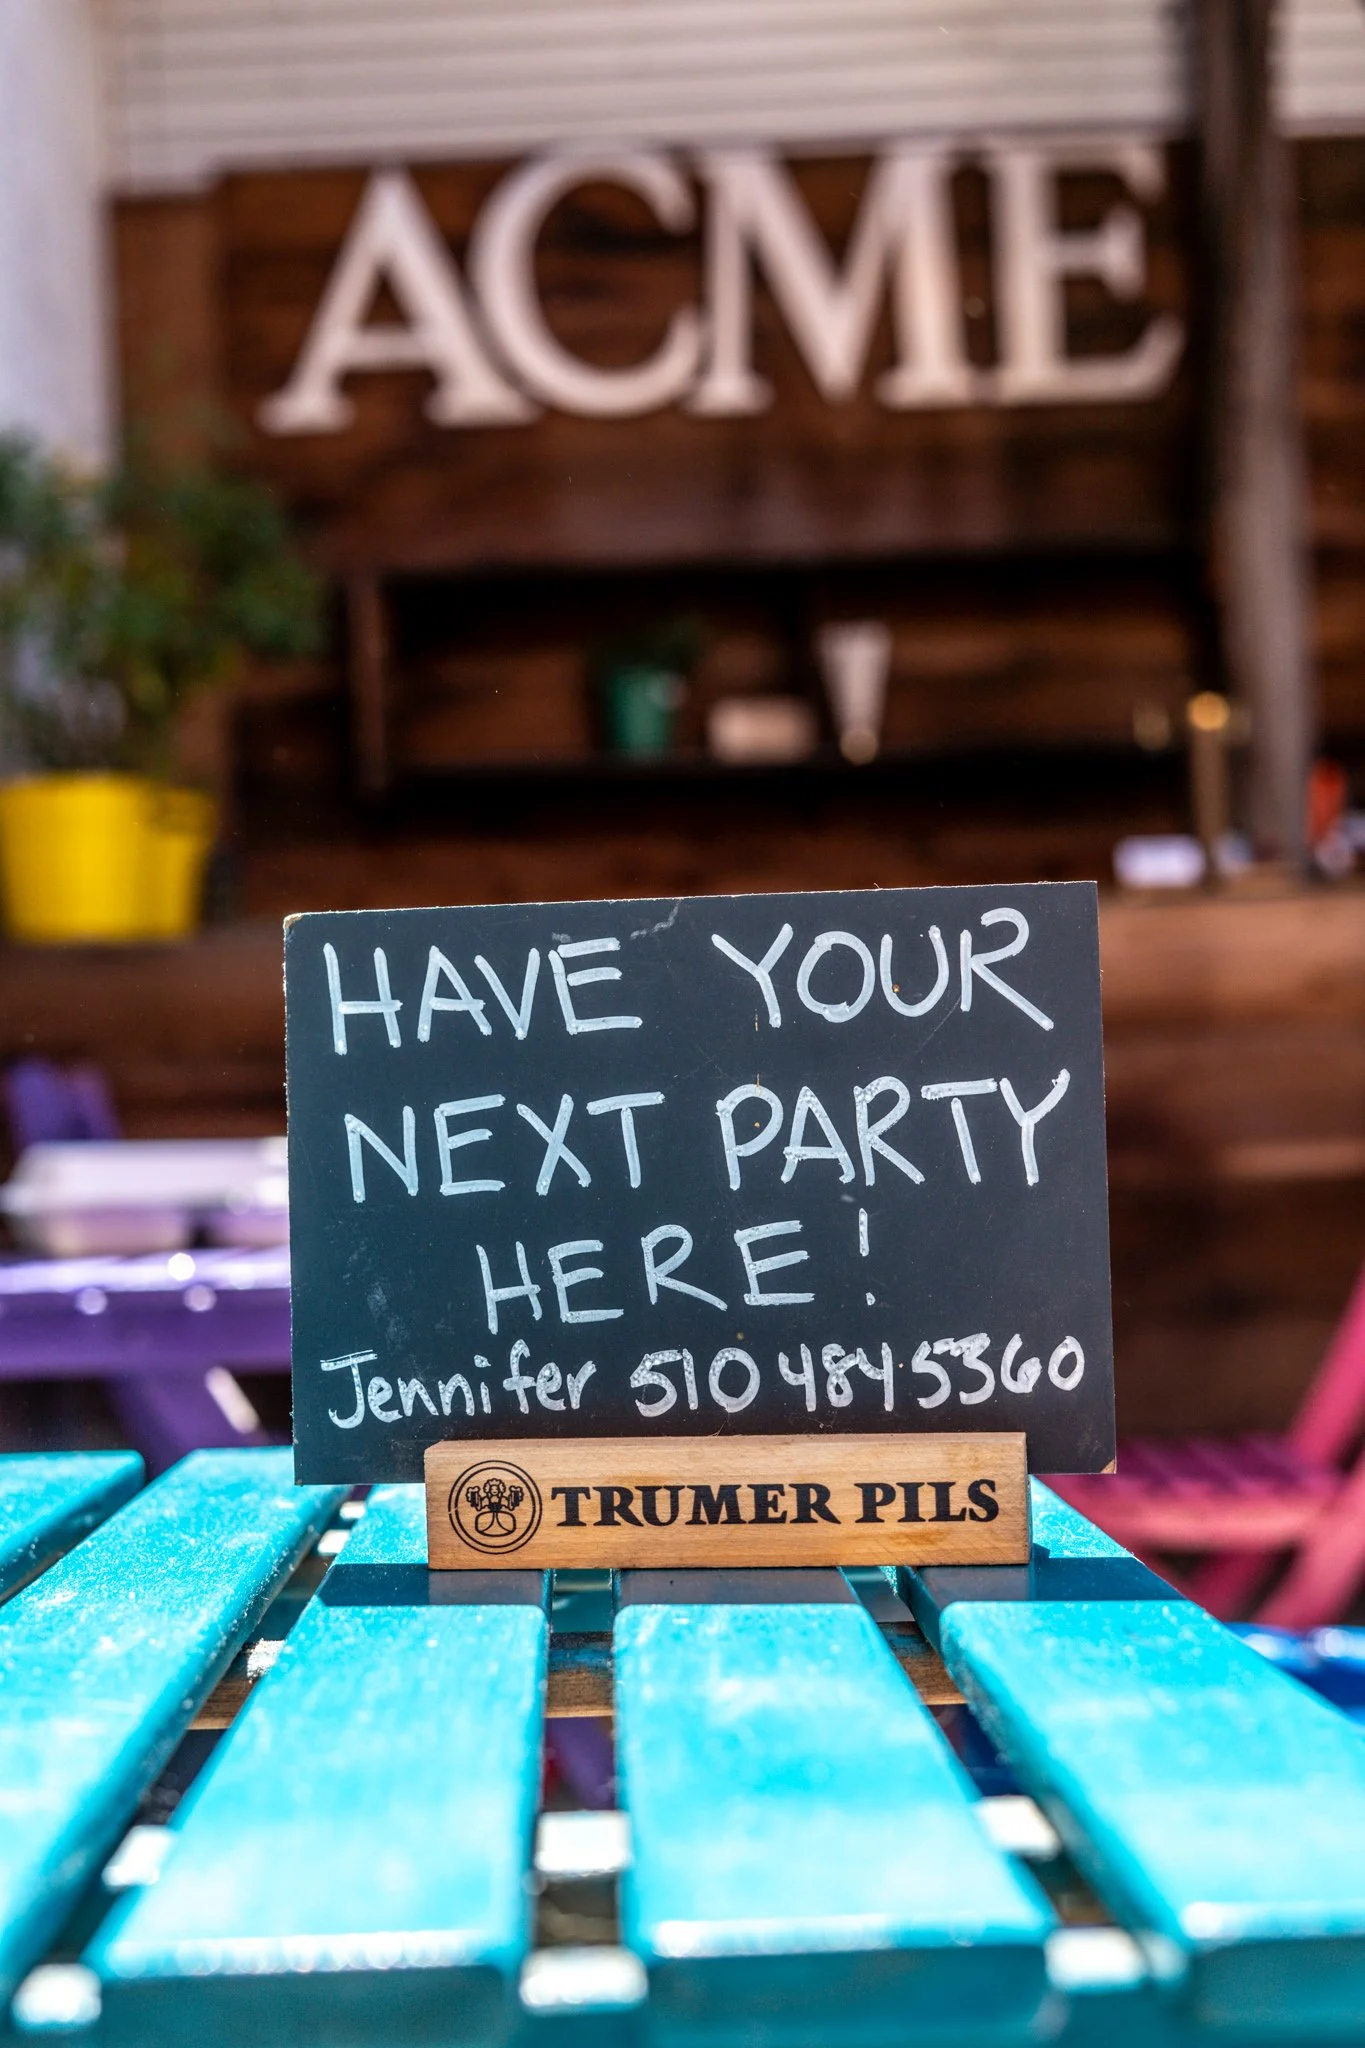 ACME
HAVE YOUR
NEXT PARTY
HERE!
Jennifer 510 484 5360
TRUMER PILS